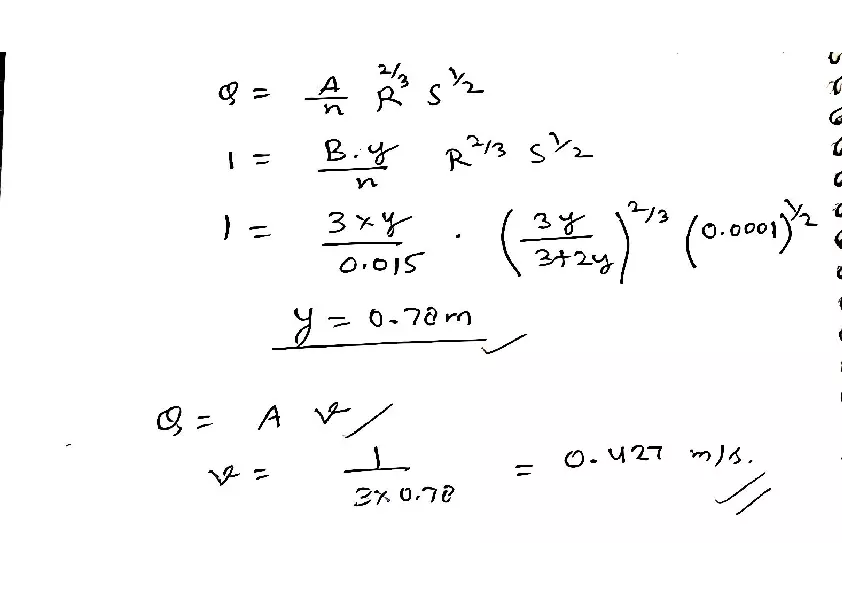 Q = A/n R^2/3 S^1/2
1 = B.y/n R^2/3 S^1/2
1 = 3×y/0.015 . (3y/3+2y)^2/3 (0.0001)^1/2
y = 0.78m
Q = A v
v = 1/3×0.78 = 0.427 m/s.